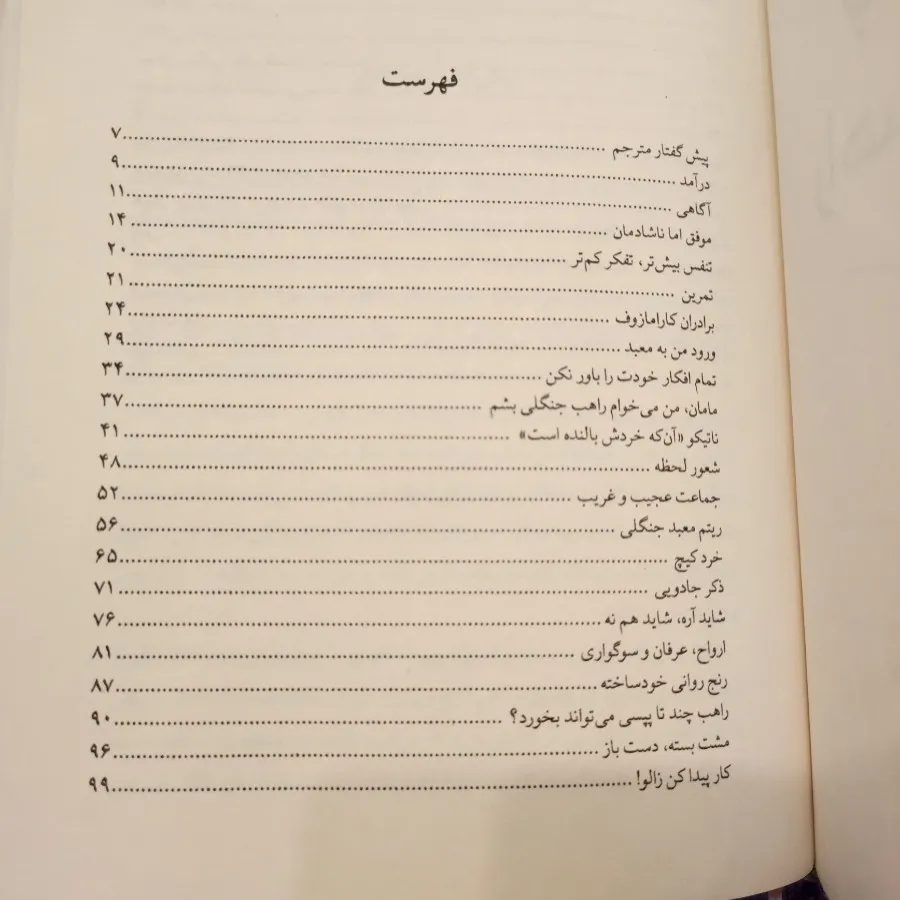 فهرست
پیش گفتار مترجم ........ ۷
درآمد ........ ۹
آگاهی ........ ۱۱
موفق اما ناشادمان ........ ۱۴
تنفس بیش‌تر، تفکر کم‌تر ........ ۲۰
تمرین ........ ۲۱
برادران کارامازوف ........ ۲۴
ورود من به معبد ........ ۲۹
تمام افکار خودت را باور نکن ........ ۳۴
مامان، من می‌خوام راهب جنگلی بشم ........ ۳۷
ناتیکو «آن‌که خردش بالنده است» ........ ۴۱
شعور لحظه ........ ۴۸
جماعت عجیب و غریب ........ ۵۲
ریتم معبد جنگلی ........ ۵۶
خرد کیچ ........ ۶۵
ذکر جادویی ........ ۷۱
شاید آره، شاید هم نه ........ ۷۶
ارواح، عرفان و سوگواری ........ ۸۱
رنج روانی خودساخته ........ ۸۷
راهب چند تا پپسی می‌تواند بخورد؟ ........ ۹۰
مشت بسته، دست باز ........ ۹۶
کار پیدا کن زالو! ........ ۹۹